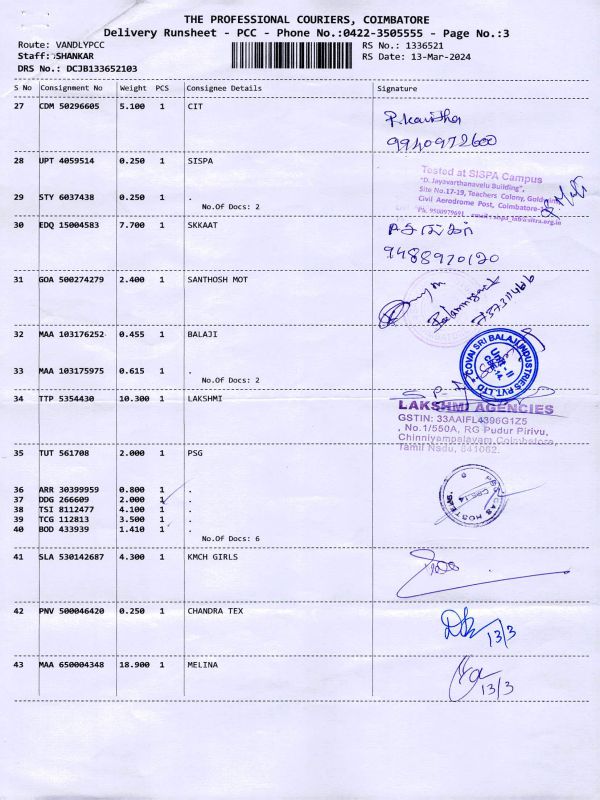 THE PROFESSIONAL COURIERS, COIMBATORE
Delivery Runsheet - PCC - Phone No.:0422-3505555 - Page No.:3
Route: VANDLYPCC RS No.: 1336521
Staff: SHANKAR RS Date: 13-Mar-2024
DRS No.: DCJB133652103
S No Consignment No Weight PCS Consignee Details Signature
27 CDM 50296605 5.100 1 CIT
P.Kavitha
9940972600
28 UPT 4059514 0.250 1 SISPA
Tested at SISPA Campus
"D. Jayavarthanavelu Building",
Site No.17-19, Teachers Colony,
Civil Aerodrome Post, Coimbatore-
29 STY 6037438 0.250 1 .
No.Of Docs: 2
30 EDQ 15004583 7.700 1 SKKAAT
9488970120
31 GOA 500274279 2.400 1 SANTHOSH MOT
32 MAA 103176252 0.455 1 BALAJI
COVAI SRI BALAJI INDUSTRIES PVT.LTD
33 MAA 103175975 0.615 1 .
No.Of Docs: 2
34 TTP 5354430 10.300 1 LAKSHMI
LAKSHMI AGENCIES
GSTIN: 33AAIFL4396G1Z5
, No.1/550A, RG Pudur Pirivu,
Chinniyampalayam,Coimbatore,
Tamil Nsdu, 641062.
35 TUT 561708 2.000 1 PSG
36 ARR 30399959 0.800 1 .
37 DDG 266609 2.000 1 .
38 TSI 8112477 4.100 1 .
39 TCG 112813 3.500 1 .
40 BOD 433939 1.410 1 .
No.Of Docs: 6
41 SLA 530142687 4.300 1 KMCH GIRLS
42 PNV 500046420 0.250 1 CHANDRA TEX
13/3
43 MAA 650004348 18.900 1 MELINA
13/3